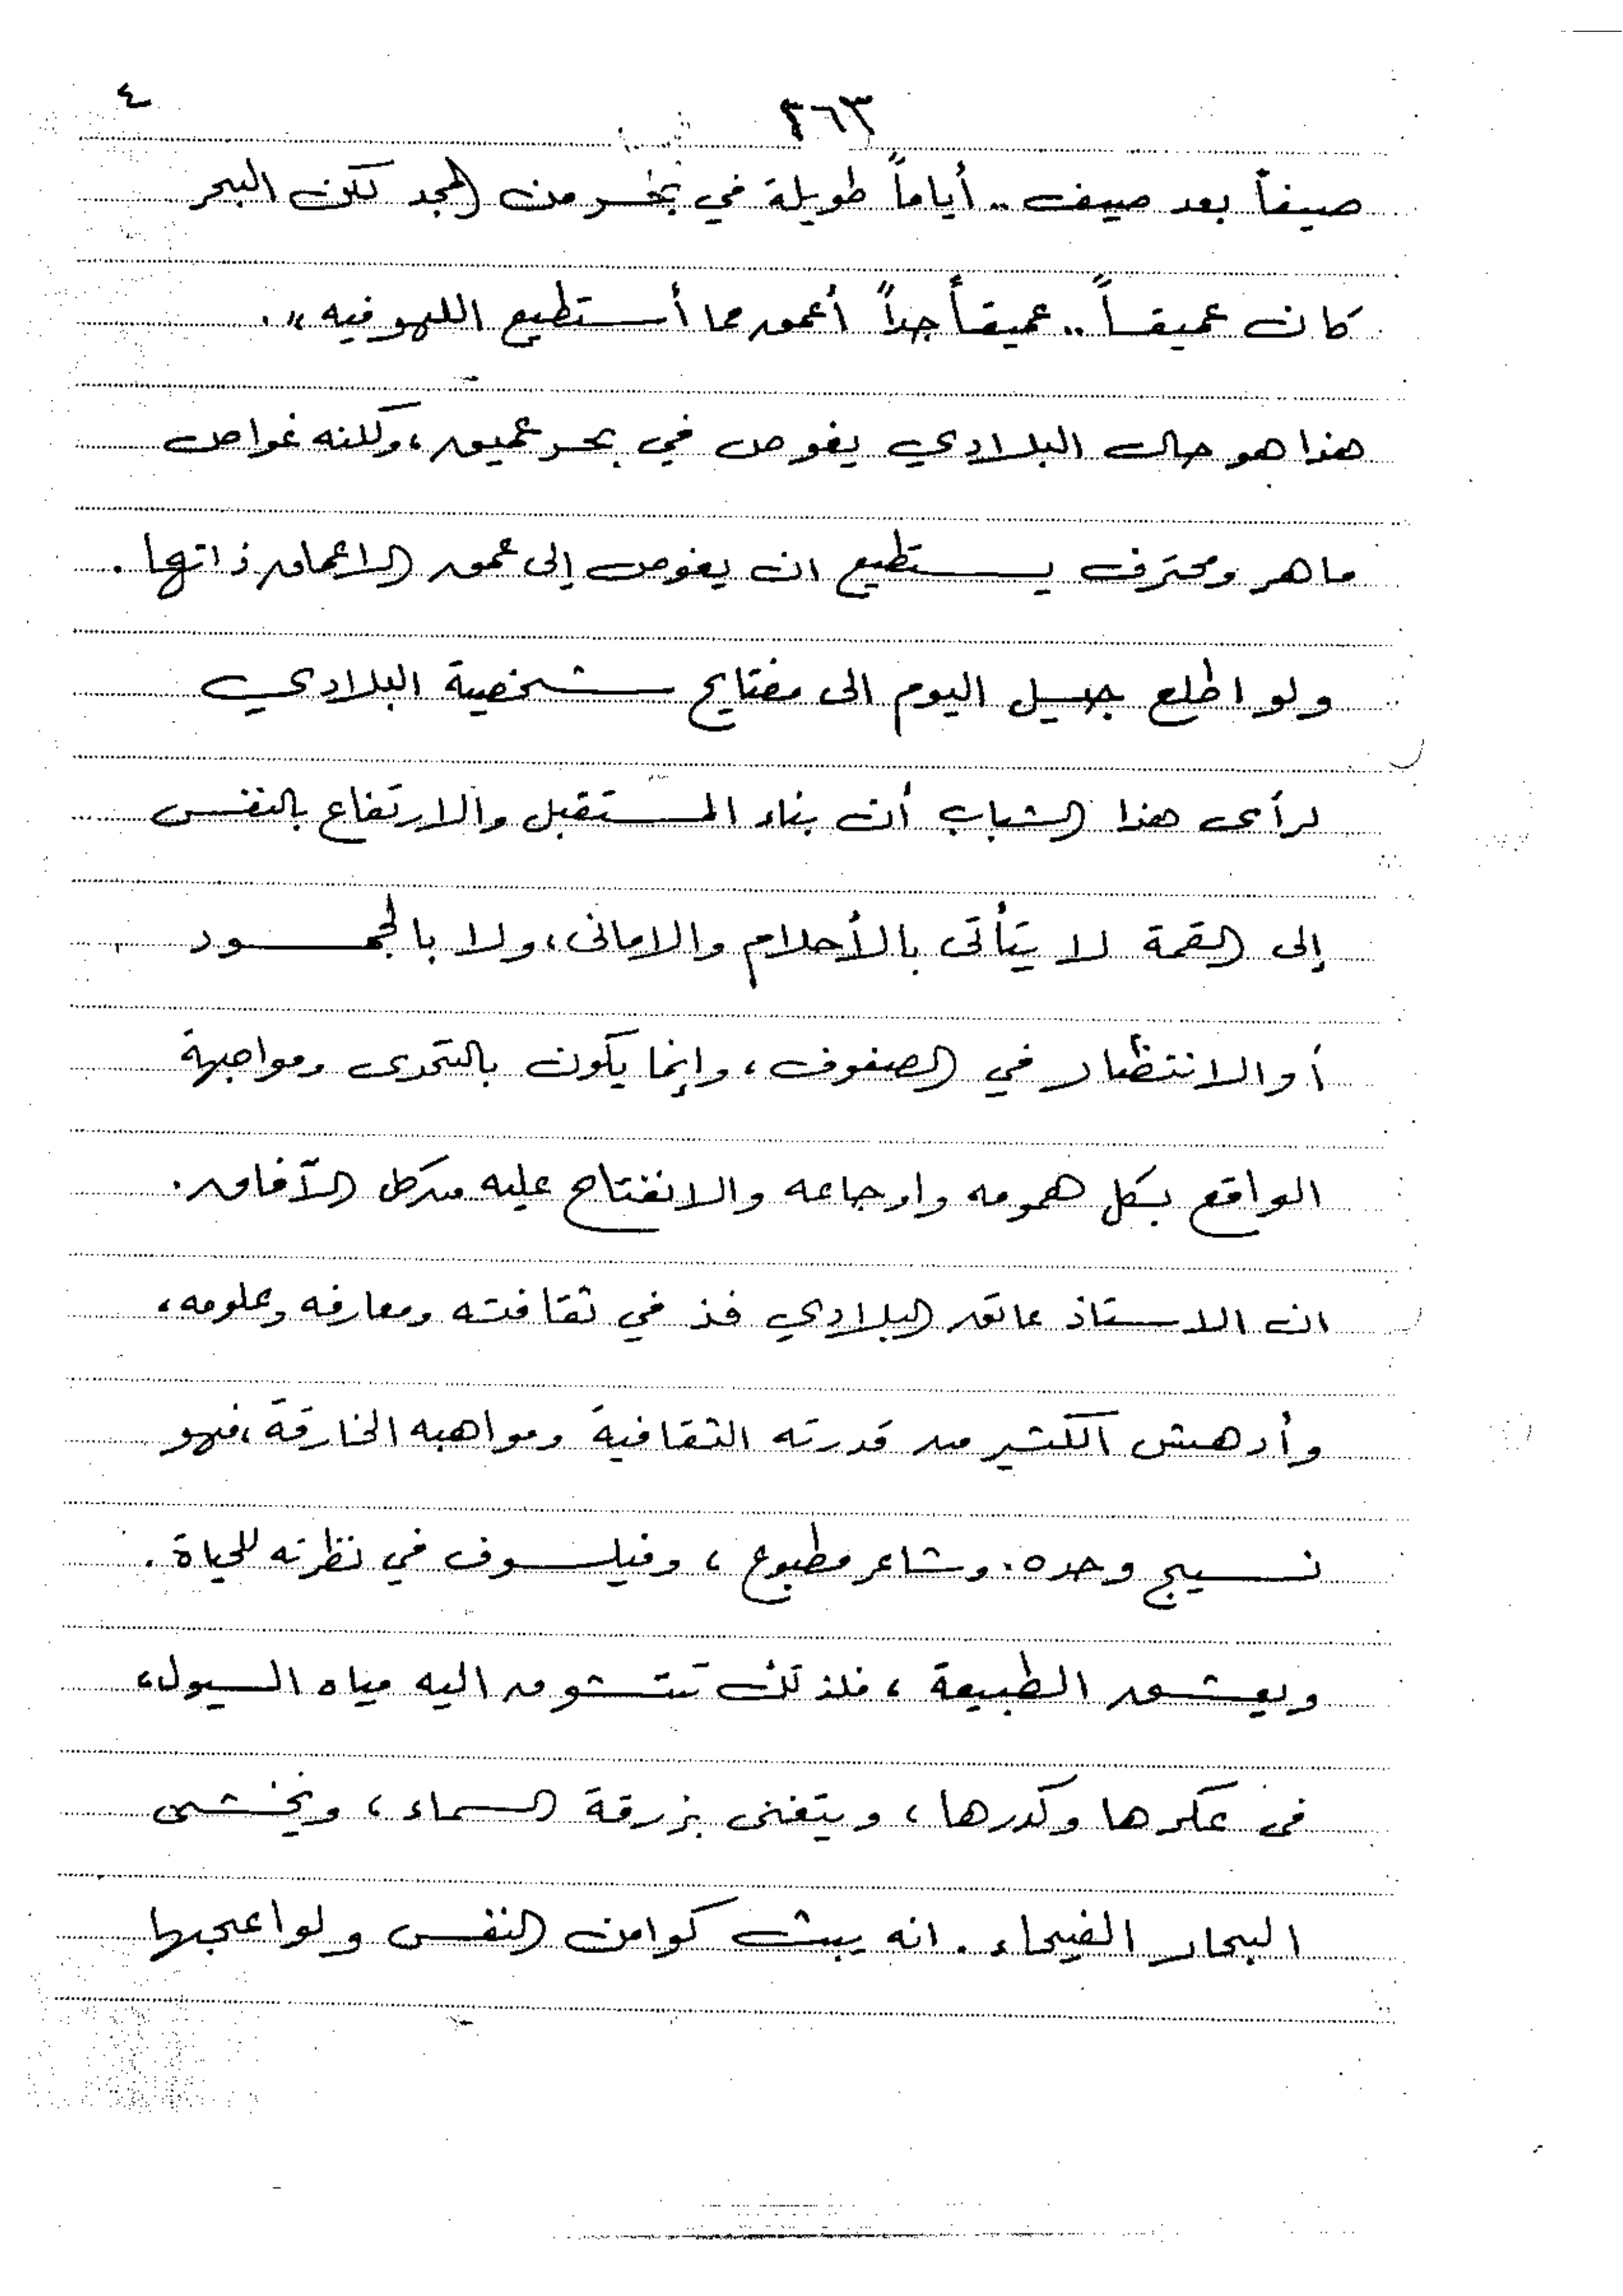 ٤
٢٦٣
صيفاً بعد صيف .. أياماً طويلة في بحر من المجد لكن البحر
كان عميقاً .. عميقاً جداً أعمق مما أستطيع اللهو فيه » .
هذا هو حال البلادي يغوص في بحر عميق ، ولكنه غواص
ماهر ومحترف يستطيع ان يغوص إلى عمق الاعماق ذاتها .
ولو اطلع جيل اليوم الى مفتايح شخصية البلادي
لرأى هذا الشباب أن بناء المستقبل والارتفاع بالنفس
إلى القمة لا يتأتى بالأحلام والامانى ، ولا بالجمود
أو الانتظار في الصفوف ، وإنما يكون بالتحدى ومواجهة
الواقع بكل همومه واوجاعه والانفتاح عليه من كل الآفاق .
ان الاستاذ عاتق البلادي فذ في ثقافته ومعارفه وعلومه ،
وأدهش الكثير من قدرته الثقافية ومواهبه الخارقة ، فهو
نسيج وحده . وشاعر مطبوع ، وفيلسوف في نظرته للحياة .
ويعشق الطبيعة ، فلذلك تتشوق اليه مياه السيول ،
فى عكرها وكدرها ، ويتغنى بزرقة السماء ، ويخشى
البحار الفيحاء . انه يبث كوامن النفس ولواعجها